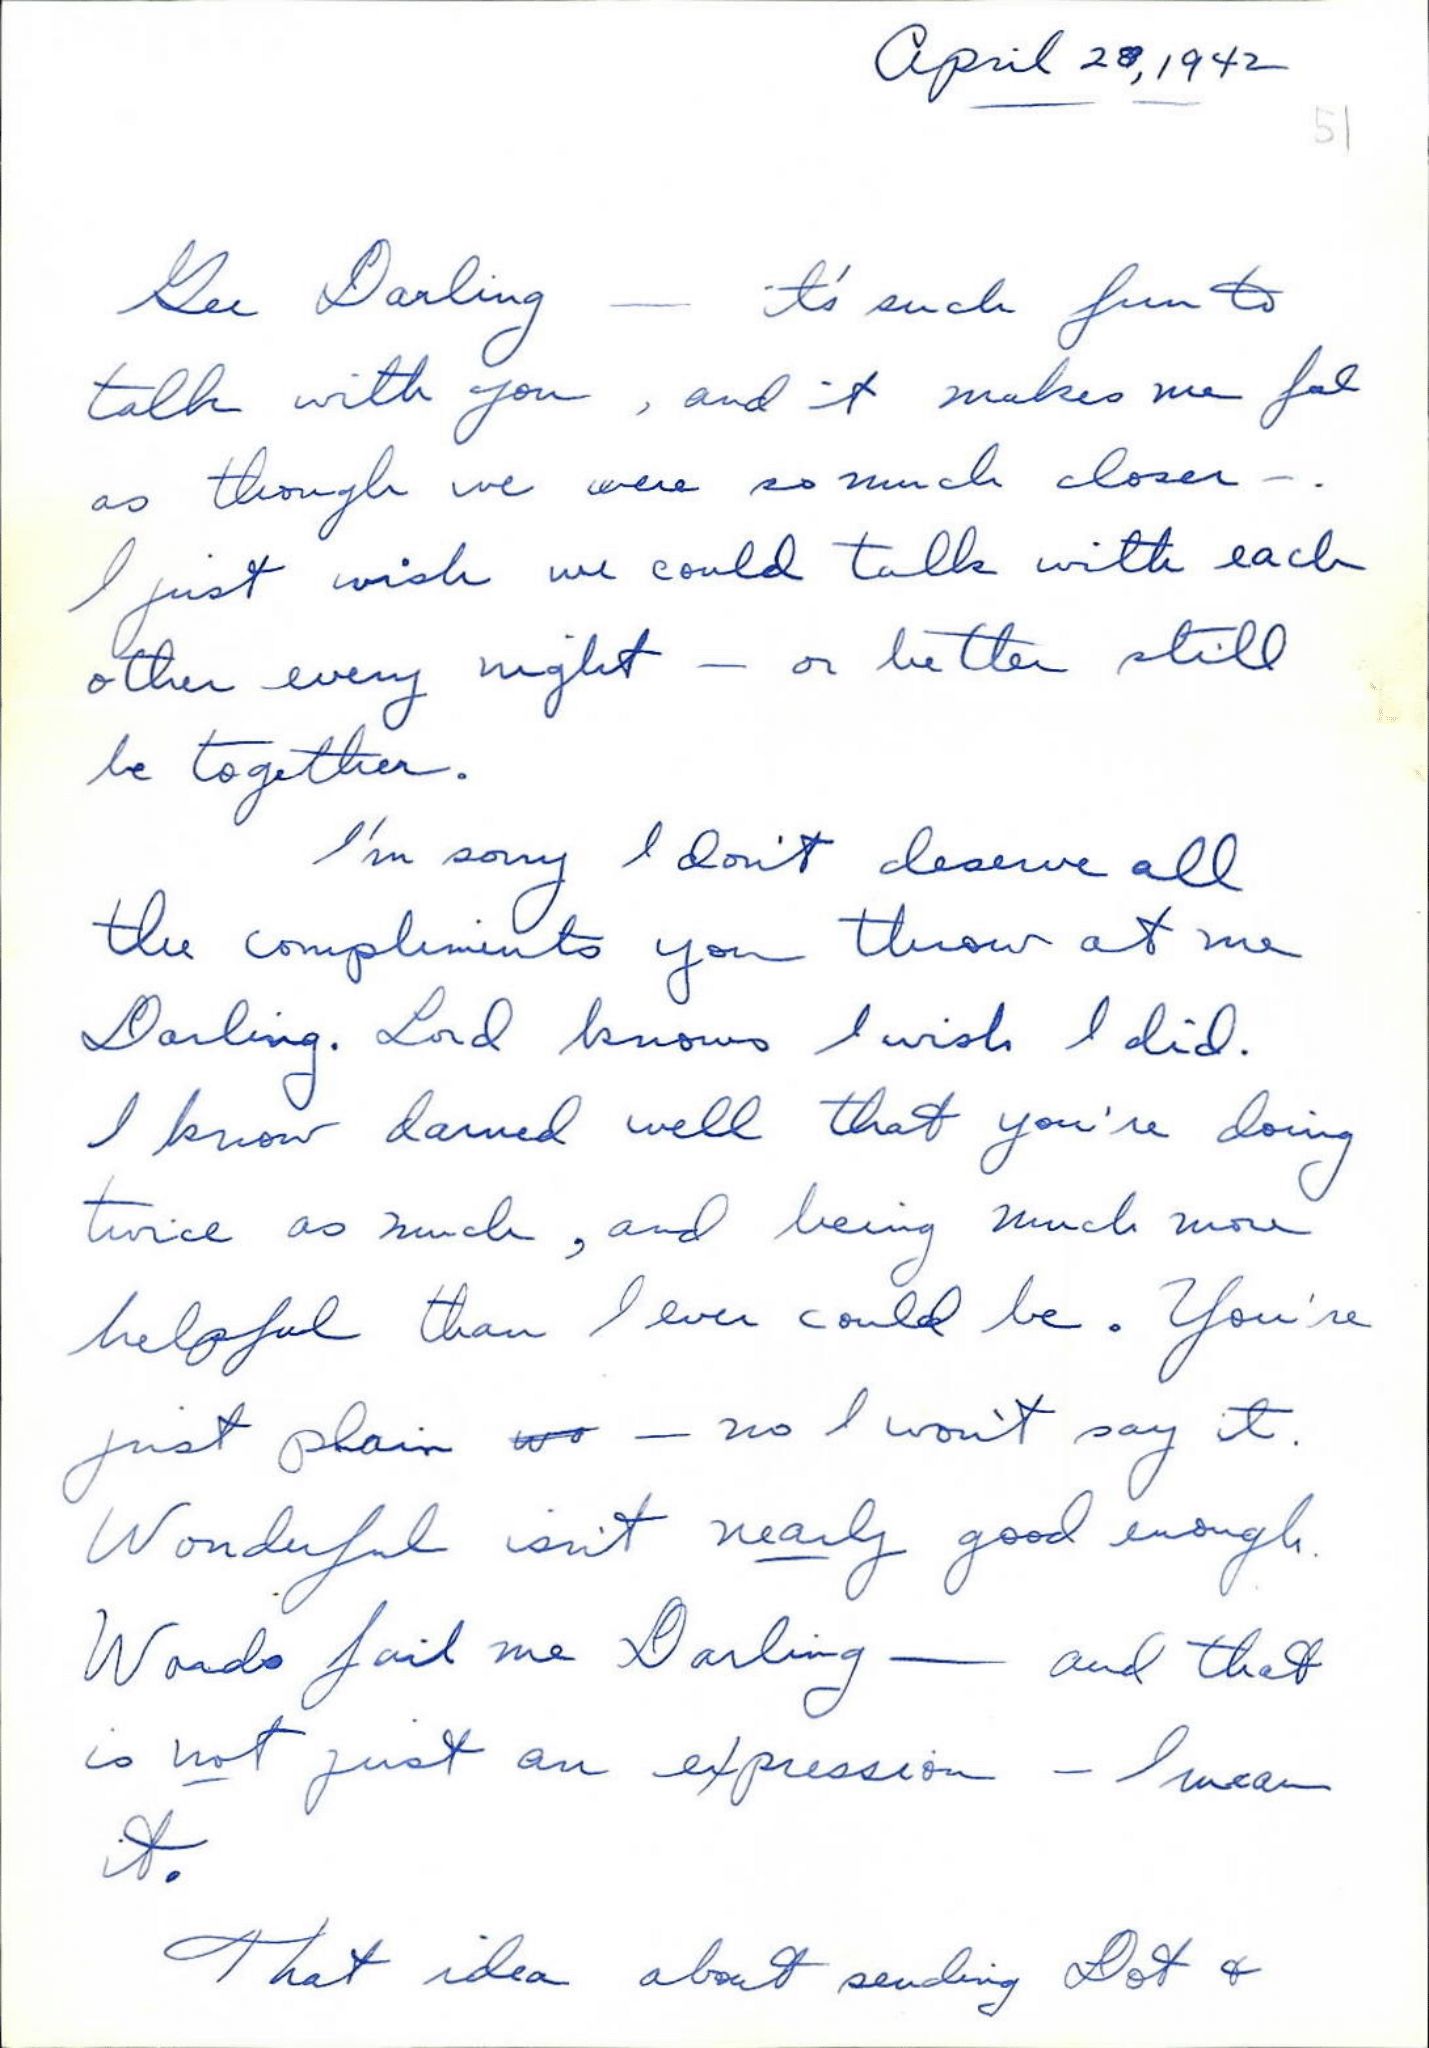 April 28, 1942
51
Gee Darling — it's such fun to
talk with you, and it makes me feel
as though we were so much closer –.
I just wish we could talk with each
other every night – or better still
be together.
I'm sorry I don't deserve all
the compliments you throw at me
Darling. Lord knows I wish I did.
I know darned well that you're doing
twice as much, and being much more
helpful than I ever could be. You're
just plain wo – no I won't say it.
Wonderful isn't nearly good enough.
Words fail me Darling — and that
is not just an expression – I mean
it.
That idea about sending Dot &